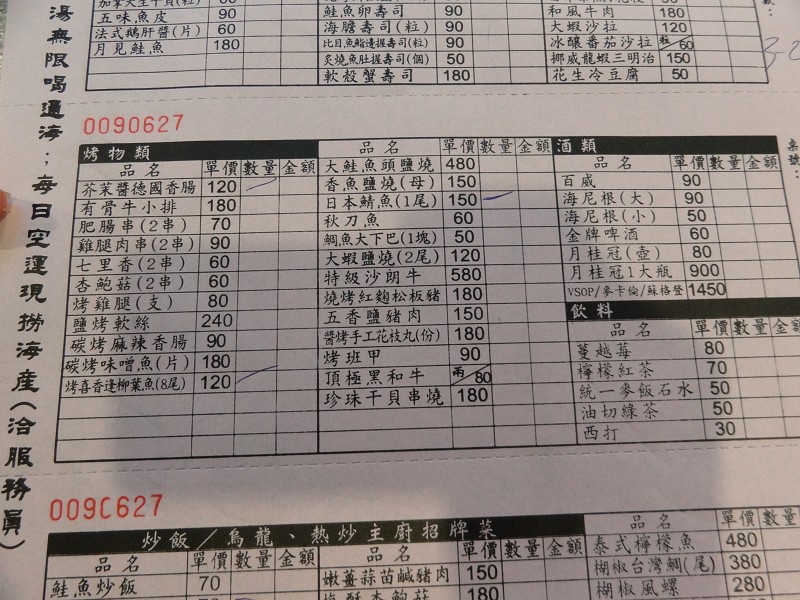 湯無限喝通海；每日空運現撈海產(洽服務員)
五味魚皮 90
法式鵝肝醬(片) 60
月見鮭魚 180
鮭魚卵壽司 90
海膽壽司(粒) 90
比目魚鮨邊握壽司(粒) 90
炙燒魚肚握壽司(個) 50
軟殼蟹壽司 180
和風牛肉 180
大蝦沙拉 120
冰釀番茄沙拉 粒/60
挪威龍蝦三明治 150
花生冷豆腐 50
0090627
烤物類
品名 單價 數量 金額
芥茉醬德國香腸 120
有骨牛小排 180
肥腸串(2串) 70
雞腿肉串(2串) 90
七里香(2串) 60
杏鮑菇(2串) 60
烤雞腿(支) 80
鹽烤軟絲 240
碳烤麻辣香腸 90
碳烤味噌魚(片) 180
烤喜香逢柳葉魚(8尾) 120
品名 單價 數量 金額
大鮭魚頭鹽燒 480
香魚鹽燒(母) 150
日本鯖魚(1尾) 150
秋刀魚 60
鯛魚大下巴(1塊) 50
大蝦鹽燒(2尾) 120
特級沙朗牛 580
燒烤紅麴松板豬 180
五香鹽豬肉 150
醬烤手工花枝丸(份) 180
烤班甲 90
頂極黑和牛 兩/80
珍珠干貝串燒 180
酒類
品名 單價 數量 金
百威 90
海尼根(大) 90
海尼根(小) 50
金牌啤酒 60
月桂冠(壺) 80
月桂冠1大瓶 900
VSOP/麥卡倫/蘇格登 1450
飲料
品名 單價 數量
蔓越莓 80
檸檬紅茶 70
統一麥飯石水 50
油切綠茶 50
西打 30
桌號:
009C627
炒飯／烏龍、熱炒主廚招牌菜
品名 單價 數量 金額
鮭魚炒飯 70
品名 單價 數量 金額
嫩薑蒜苗鹹豬肉 150
180
品名 單價 數量
泰式檸檬魚 480
椒枷台灣鯛(尾) 380
椒枷風螺 280